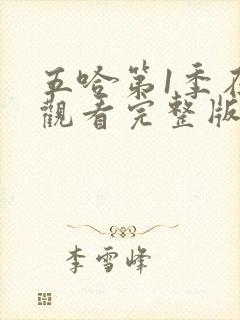 五哈第1季在
觀看完整版
李雪峰